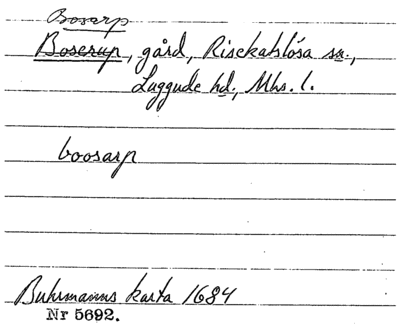 Bosarp
Boserup, gård, Risekatslösa sn.,
Luggude hd., Mhs. l.
boosarp
Buhrmanns karta 1684
Nr 5692.